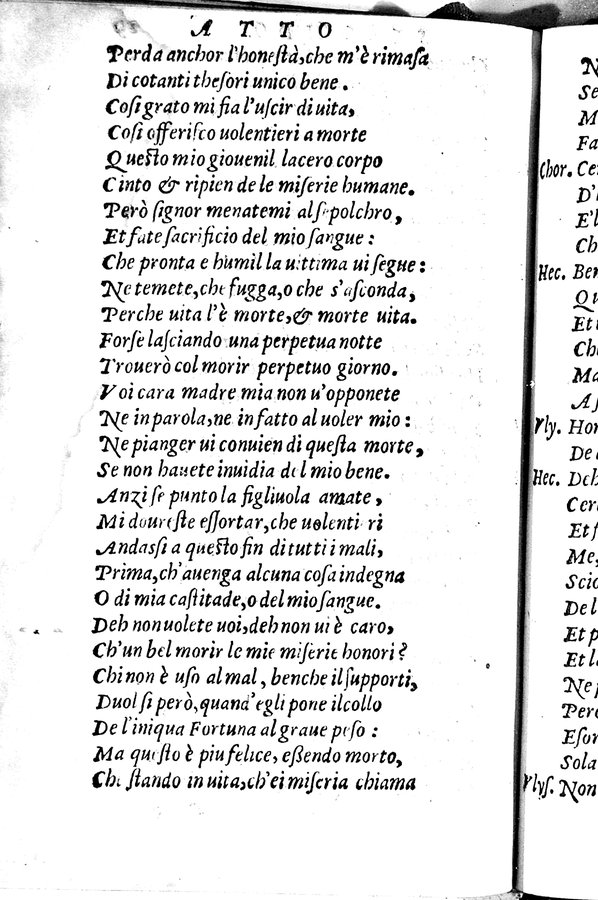 ATTO
Perda anchor l'honestà, che m'è rimasa
Di cotanti thesori unico bene.
Cosi grato mi fia l'uscir di uita,
Cosi offerisco uolentieri a morte
Questo mio giouenil lacero corpo
Cinto & ripien de le miserie humane.
Però signor menatemi al sepolchro,
Et fate sacrificio del mio sangue:
Che pronta e humil la uittima ui segue:
Ne temete, che fugga, o che s'asconda,
Perche uita l'è morte, & morte uita.
Forse lasciando una perpetua notte
Trouerò col morir perpetuo giorno.
Voi cara madre mia non u'opponete
Ne in parola, ne in fatto al uoler mio:
Ne pianger ui conuien di questa morte,
Se non hauete inuidia del mio bene.
Anzi se punto la figliuola amate,
Mi doureste essortar, che uolentieri
Andassi a questo fin di tutti i mali,
Prima, ch'auenga alcuna cosa indegna
O di mia castitade, o del mio sangue.
Deh non uolete uoi, deh non ui è caro,
Ch'un bel morir le mie miserie honori?
Chi non è uso al mal, benche il supporti,
Duolsi però, quand'egli pone il collo
De l'iniqua Fortuna al graue peso:
Ma questo è piu felice, essendo morto,
Che stando in uita, ch'ei miseria chiama
N
Se
M
Fa
Chor. Ce
D'
E'l
Ch
Hec. Ben
Qu
Et
Ch
Ma
As
Vly. Hor
De
Hec. Deh
Cer
Et
Me,
Scio
De l
Et p
Et l
Ne
Per
Esor
Sola
Vlys. Non